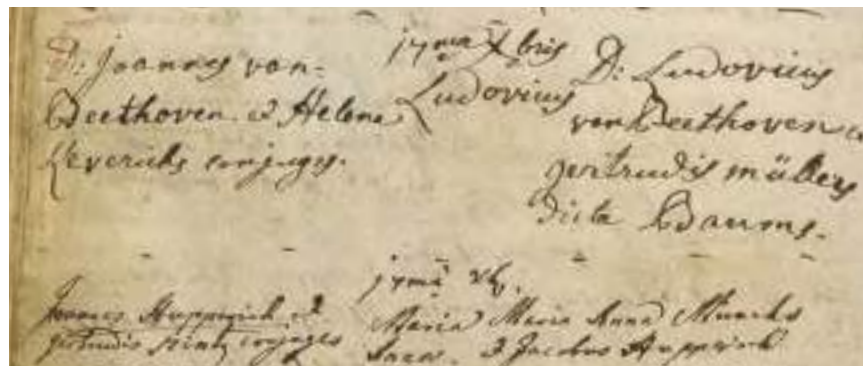 D: joannes van
Beethoven & Helena
Keverichs conjuges.
17ma Xbris
Ludovicus
D: Ludovicus
van Beethoven &
gertrudis müllers
dicta Baums.
Joannes &
gertrudis conjuges
17ma
Maria
Maria Anna Munchs
& Jacobus